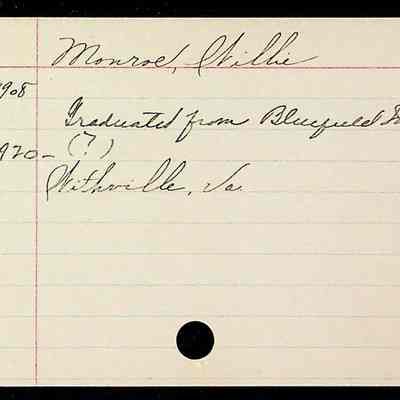 Monroe, Willie
1908
Graduated from Bluefield
1920- (?)
Withville, Va.